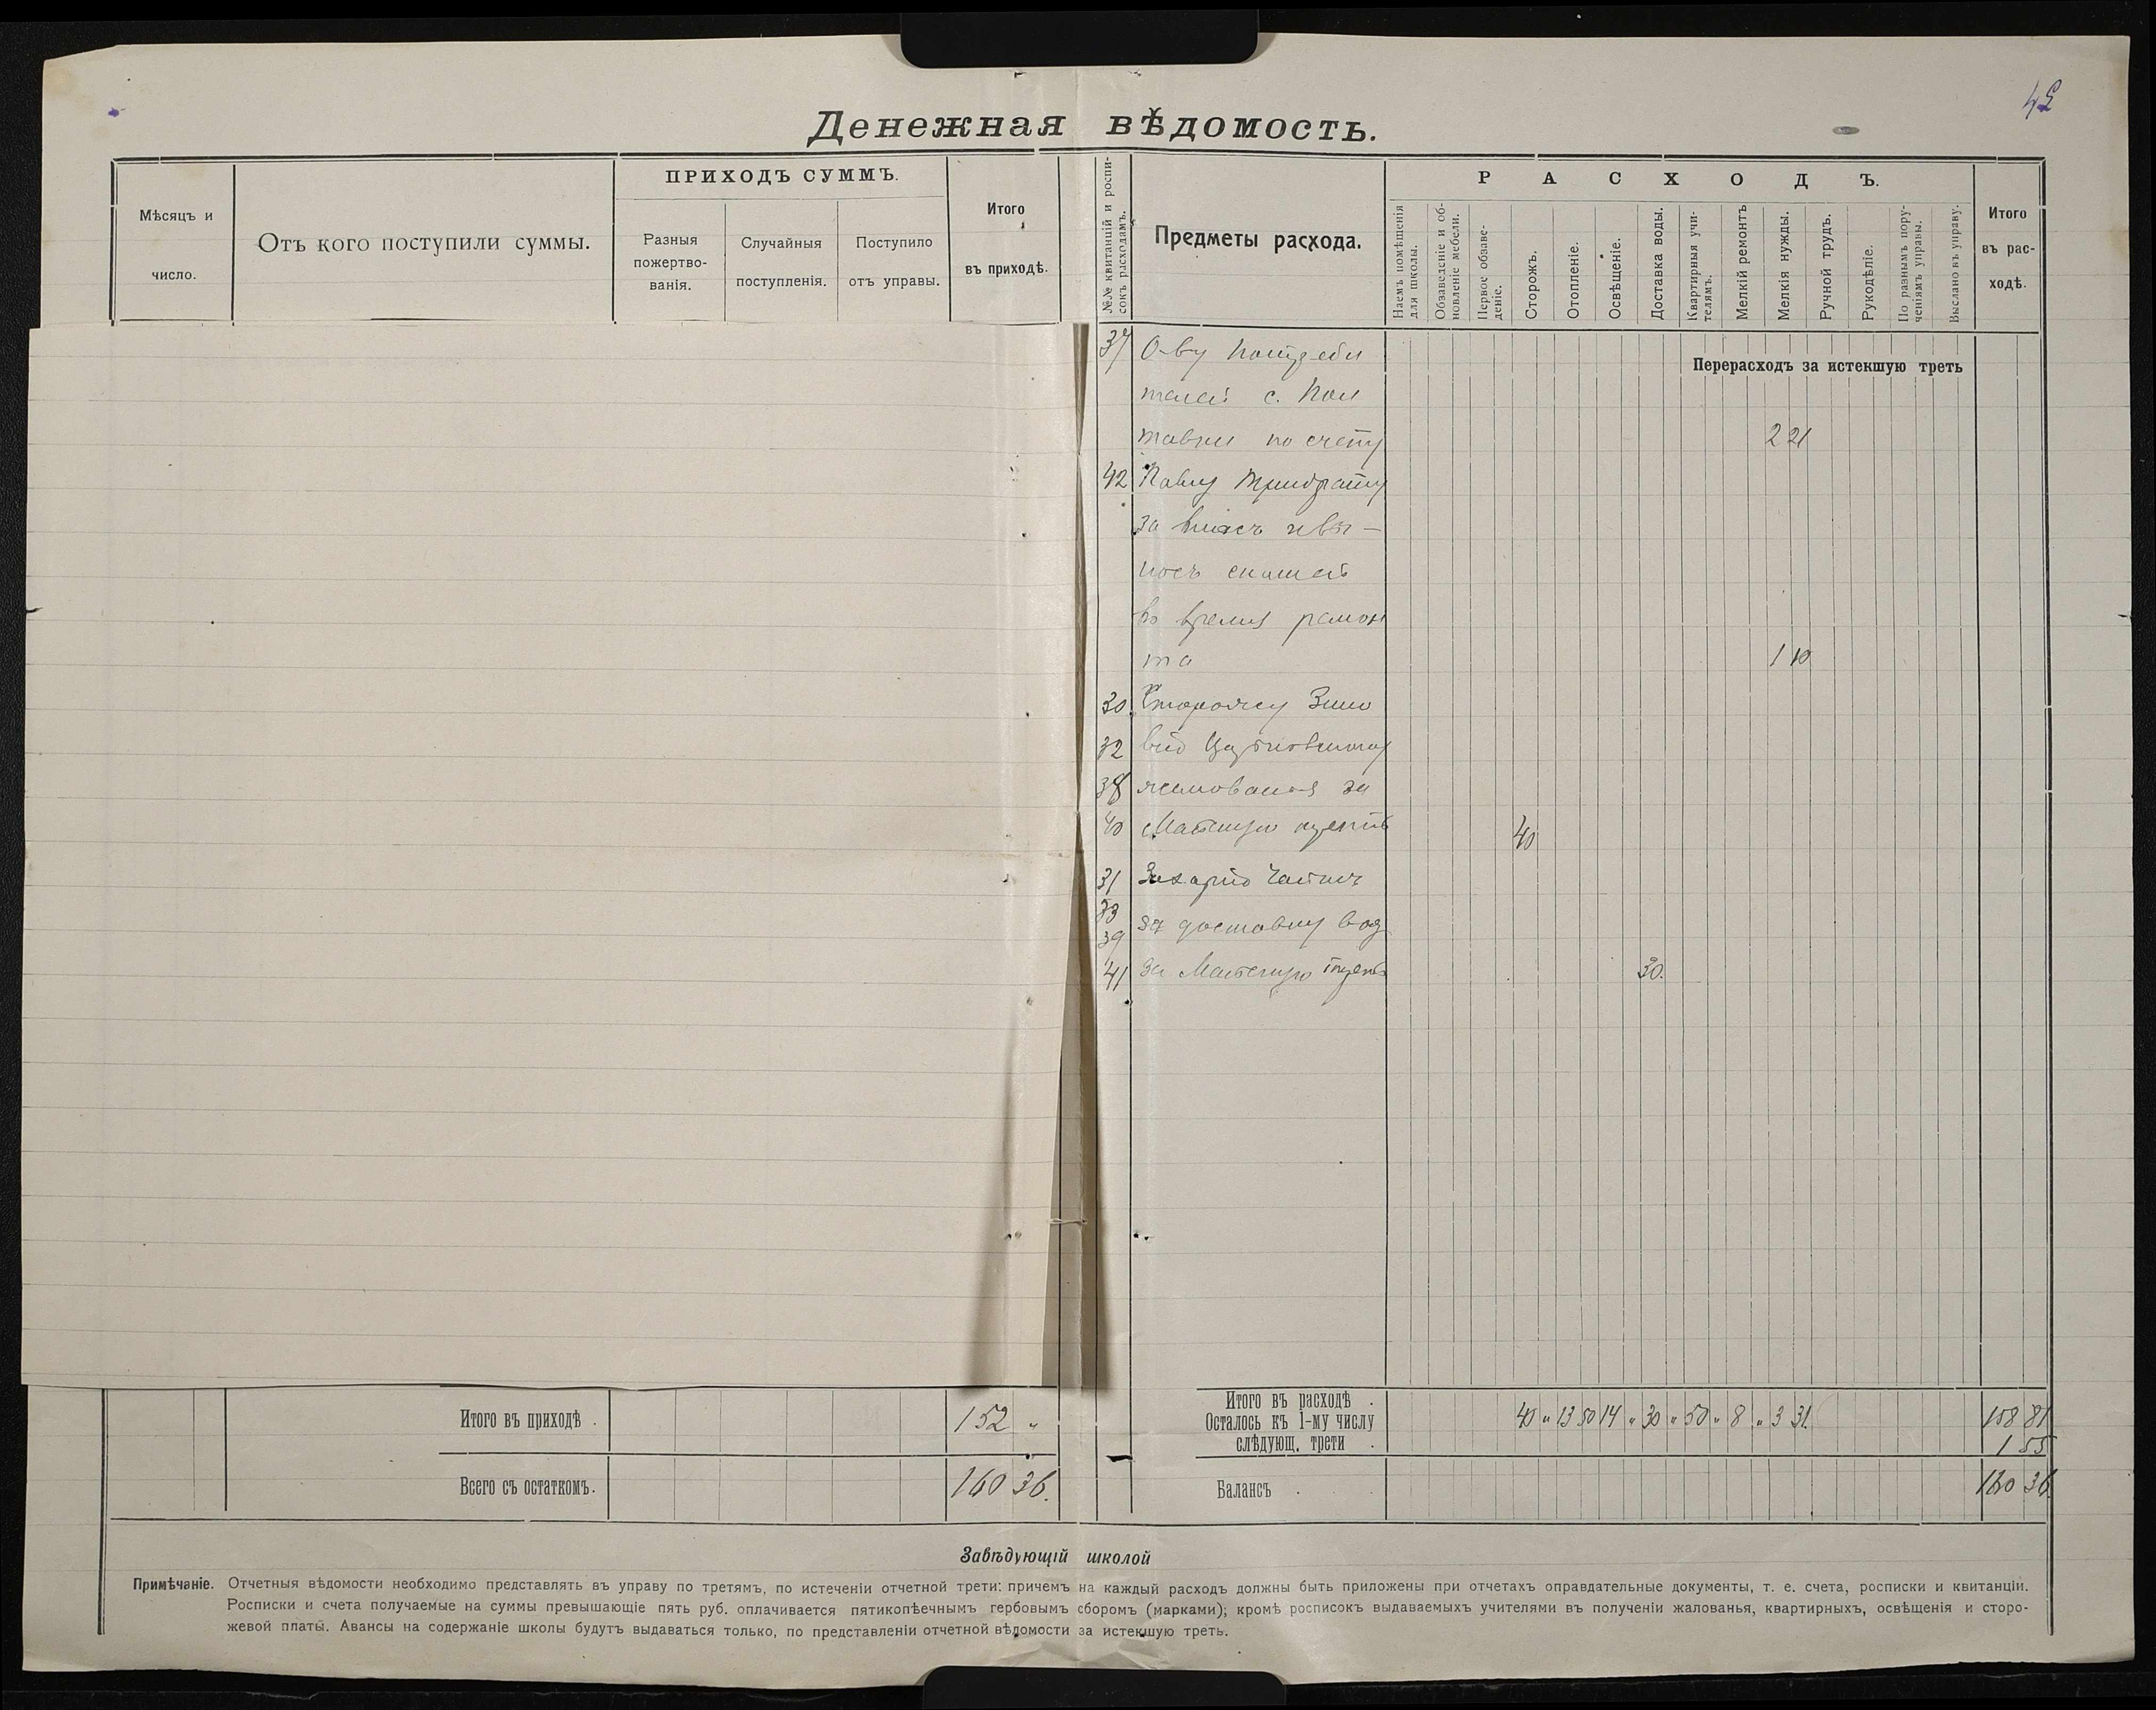 42
Денежная вѣдомость.
Мѣсяцъ и
число.
Отъ кого поступили суммы.
ПРИХОДЪ СУММЪ.
Разныя
пожертво-
ванія.
Случайныя
поступленія.
Поступило
отъ управы.
Итого
въ приходѣ.
№№ квитанцій и роспи-
сокъ расходамъ.
Предметы расхода.
РАСХОДЪ.
Наемъ помѣщенія
для школы.
Обзаведеніе и об-
новленіе мебели.
Первое обзаве-
деніе.
Сторожъ.
Отопленіе.
Освѣщеніе.
Доставка воды.
Квартирныя учи-
телямъ.
Мелкій ремонтъ
Мелкія нужды.
Ручной трудъ.
Рукодѣліе.
По разнымъ пору-
ченіямъ управы.
Выслано въ управу.
Итого
въ рас-
ходѣ.
Перерасходъ за истекшую треть
37 О-ву потреби
телей с. Пол
тавки по счету 2 21
42 Павлу
за вносъ и вы-
носъ скамей
во время ремон
та 1 10
30 Сторожу Зино
32 вію
38 жалованья за
40 Майскую треть 40
31 Захарію
33
за доставку вод
39
41 за Майскую треть 30.
Итого въ приходѣ . 152 "
Всего съ остаткомъ. 160 36.
Итого въ расходѣ . 40 " 13 50 14 " 30 " 50 " 8 " 3 31. 158 81
Осталось къ 1-му числу
слѣдующ. трети . 1 55
Балансъ . 160 36.
Завѣдующій школой
Примѣчаніе. Отчетныя вѣдомости необходимо представлять въ управу по третямъ, по истеченіи отчетной трети: причемъ на каждый расходъ должны быть приложены при отчетахъ оправдательные документы, т. е. счета, росписки и квитанціи.
Росписки и счета получаемые на суммы превышающіе пять руб. оплачивается пятикопѣечнымъ гербовымъ сборомъ (марками); кромѣ росписокъ выдаваемыхъ учителями въ полученіи жалованья, квартирныхъ, освѣщенія и сторо-
жевой платы. Авансы на содержаніе школы будутъ выдаваться только, по представленіи отчетной вѣдомости за истекшую треть.